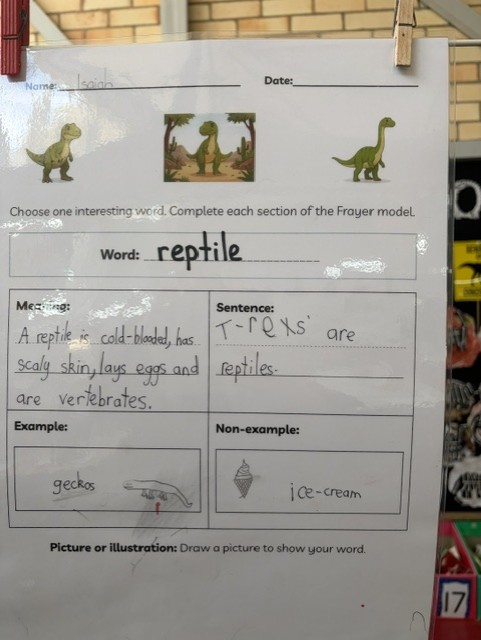 Name: Isaiah Date:
Choose one interesting word. Complete each section of the Frayer model.
Word: reptile
Meaning:
A reptile is cold-blooded, has
scaly skin, lays eggs and
are vertebrates.
Sentence:
T-rexs' are
reptiles.
Example:
geckos
Non-example:
ice-cream
Picture or illustration: Draw a picture to show your word.
17